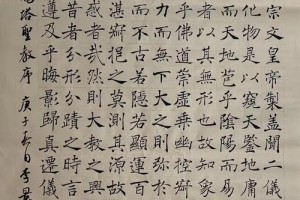 宗文皇帝製蓋聞二儀
化物是以窺天鑒地庸
而天地苞乎陰陽而易
者以其無形也故知象
乎佛道崇虛乘幽控寂
而無下大之則弥於
而不古若隱若顯運百
湛寂挹之莫測其源故
惑者哉然則大教之興
昔者分形分蹟之時言
遵及乎晦影歸真遷儀
塔聖教序 庚子春月李